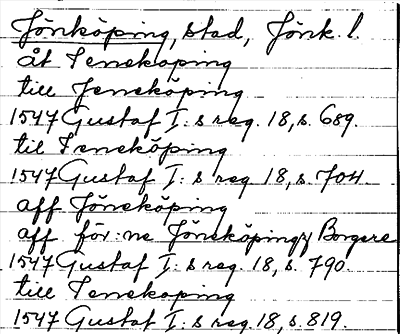 Jönköping, stad, Jönk. l.
åt Jeneköping
till Jeneköping
1547 Gustaf I:s reg. 18, s. 689.
til Jeneköping
1547 Gustaf I:s reg. 18, s. 704.
aff Jöneköping
aff för:ne Jöneköpingz Borgere
1547 Gustaf I:s reg. 18, s. 790.
till Jenekoping
1547 Gustaf I:s reg. 18, s. 819.